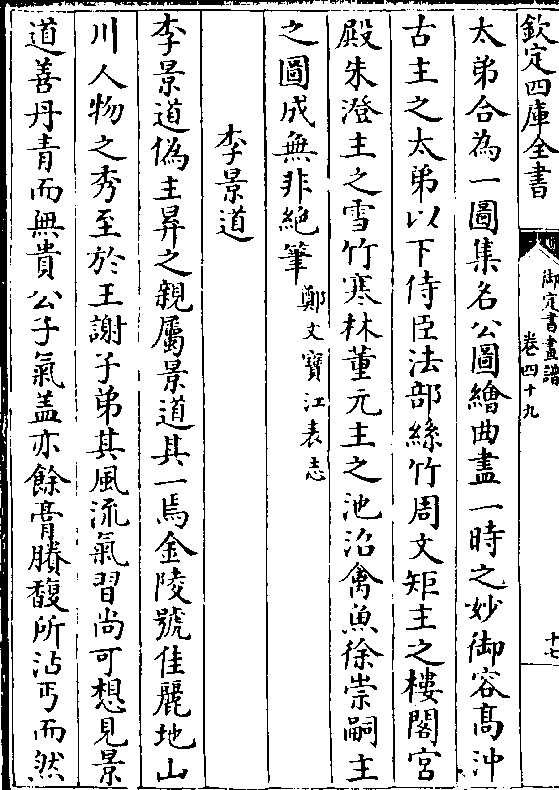 欽定四庫全書
御定書畫譜
卷四十九
十七
太弟合為一圖集名公圖繪曲盡一時之妙御容髙沖
古主之太弟以下侍臣法部絲竹周文矩主之樓閣宫
殿朱澄主之雪竹寒林董元主之池沼禽魚徐崇嗣主
之圖成無非絶筆鄭文寶江表志
李景道
李景道偽主昇之親屬景道其一焉金陵號佳麗地山
川人物之秀至於王謝子弟其風流氣習尚可想見景
道善丹青而無貴公子氣盖亦餘膏賸馥所沾丐而然